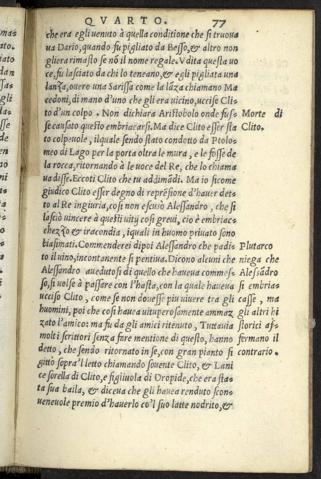 QVARTO. 77
che era egli venuto à quella conditione che si truoua
ua Dario, quando fu pigliato da Besso, & altro non
gliera rimasto se nõ il nome regale. Vdita questa uo
ce, fu lasciato da chi lo teneano, & egli pigliata una
lanza, ouero una Sarissa come la lāza chiamano Ma
cedoni, di mano d'uno che gli era uicino, uccise Cli
to d'un colpo. Non dichiara Aristobolo onde fus-
se causato questo embriacarsi. Ma dice Clito esser sta
to colpeuole, ilquale sendo stato condotto da Ptolo
meo di Lago per la porta oltre le mura, e le fosse de
la rocca, ritornando à le uoce del Re, che lo chiama
ua disse. Eccoti Clito che tu addimãdi. Ma io sicome
giudico Clito esser degno di reprēsione d'hauer det-
to al Re ingiuria, cosi non escuso Alessandro, che si
lasciò uincere à questi uitij cosi greui, cio è embriac-
chezzo & iracondia, iquali in huomo priuato sono
biasimati. Commenderei dipoi Alessandro che padis
to il uino, incontanente si pentiua. Dicono alcuni che
Alessandro auedutosi di quello che haueua commes-
so, si uolse à passare con l'hasta, con la quale haueua
ucciso Clito, come se non douesse piu uiuere tra gli
huomini, poi che cosi haueua uituperosamente ammaz
zato l'amico: ma fu da gli amici ritenuto, Tuttauia
molti scrittori senza fare mentione di questo, hanno
detto, che sendo ritornato in se, con gran pianto si
gittò sopra'l letto chiamando souente Clito, & Lani
ce sorella di Clito, e figliuola di Dropide, che era sta-
ta sua baila, & diceua che gli hauea renduto scon-
ueneuole premio d'hauerlo co'l suo latte nodrito, &
Morte di
Clito.
Plutarco
niega che
Alesãdro
si embria-
casse, ma
gli altri hi
storici af-
fermano il
contrario.